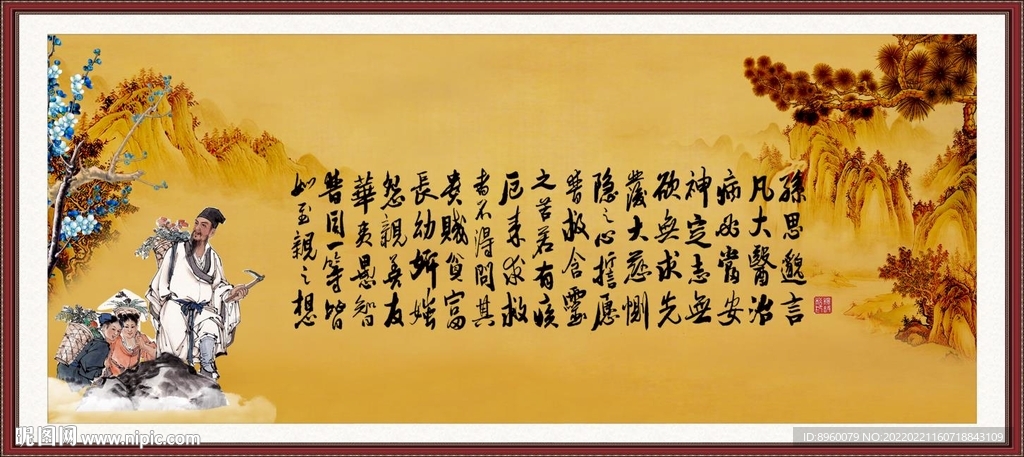 孫思邈言
凡大醫治
病必當安
神定志無
欲無求先
發大慈惻
隐之心誓愿
普救含靈
之苦若有疾
厄来求救
者不得問其
貴賤貧富
長幼妍媸
怨親善友
華夷愚智
普同一等皆
如至親之想
昵图网 www.nipic.com
ID:8960079 NO:20220221160718843109